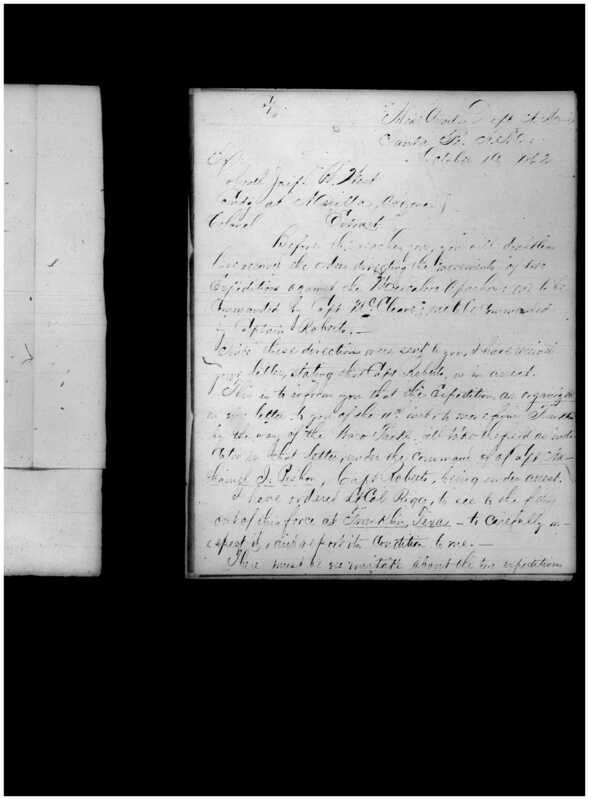 Head Quarters Dept N. Mex
Santa Fe
October 14 1862
Joseph R. West
Comdg at Mesilla, Arizona
Colonel Extract
Before this reaches you, you will doubtless
have received the orders directing the movements of two
Expeditions against the Mescalero Apaches; one to be
Commanded by Capt McCleave; one to be commanded
by Captain Roberts.—
Since these directions were sent to you, I have received
your letter, stating that Capt Roberts is in arrest.
This is to inform you that the Expedition, as organized
in my letter to you of the 11th inst. to move from Franklin
by the way of the Tanks, will take the field as
in that letter, under the command of Capt
Nathaniel J. Pishon, Capt Roberts, being under arrest.
I have ordered Lt Col Rigg, to see to the fitting
out of this force at Franklin, Texas — to carefully in-
spect it, and report its condition to me.—
There must be no mistake about the two expeditions